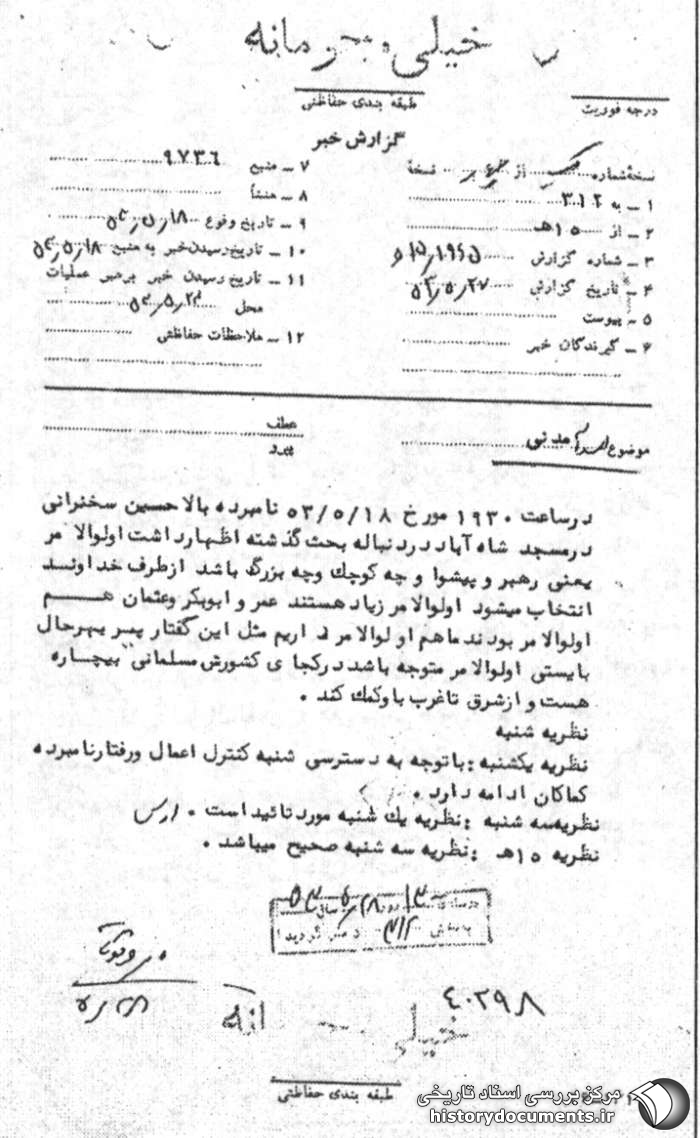 خیلی محرمانه
درجه فوریت
طبقه بندی حفاظتی
گزارش خبر
نسخه شماره یک از نسخه
۱ ـ به ۳۱۲
۲ ـ از ۱۵هـ
۳ ـ شماره گزارش
۴ ـ تاریخ گزارش ۵۳٫۵٫۲۷
۵ ـ پیوست
۶ ـ گیرندگان خبر
۷ ـ منبع ۹۷۳۶
۸ ـ منشأ
۹ ـ تاریخ وقوع ۵۳٫۵٫۱۸
۱۰ ـ تاریخ رسیدن خبر به منبع ۵۳٫۵٫۱۸
۱۱ ـ تاریخ رسیدن خبر برهبر عملیات
محل ۵۳٫۵٫۲۳
۱۲ ـ ملاحظات حفاظتی
موضوع مدنی
عطف
پیرو
درساعت ۱۹۳۰ مورخ ۵۳/۵/۱۸ نامبرده بالا حسین سخنرانی
درمسجد شاه آباد در دنباله بحث گذشته اظهارداشت اولوالا مر
یعنی رهبر و پیشوا و چه کوچك وچه بزرگ باشد ازطرف خداوند
انتخاب میشود اولوالا مر زیاد هستند عمر و ابوبکر وعثمان هم
اولوالا مر بودند ماهم اولوالا مر داریم مثل این گفتار پس بهرحال
بایستی اولوالا مر متوجه باشد درکجا ی کشورش مسلمانی بیچاره
هست و ازشرق تاغرب با وکمك کند .
نظریه شنبه
نظریه یکشنبه : باتوجه به دسترسی شنبه کنترل اعمال ورفتارنامبرده
کماکان ادامه دارد .
نظریه سه شنبه : نظریه یك شنبه مورد تائید است . ارس
نظریه ۱۵هـ : نظریه سه شنبه صحیح میباشد .
۴۰۲۹۸
خیلی محرمانه
طبقه بندی حفاظتی
مرکز بررسی اسناد تاریخی
historydocuments.ir